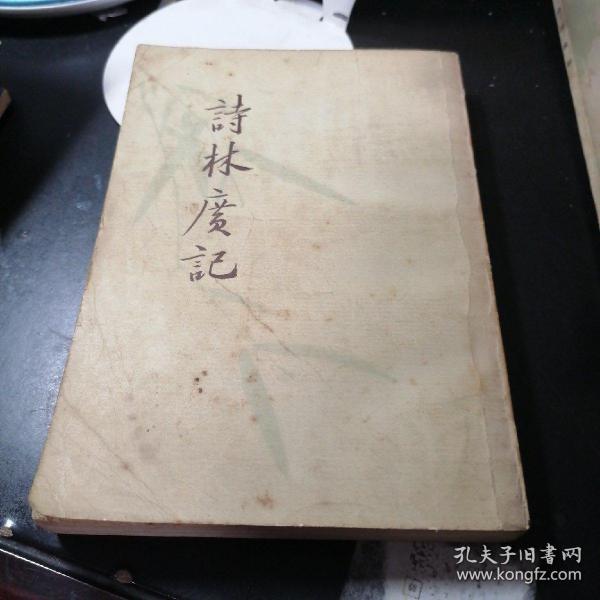 詩林廣記
孔夫子旧書网
www.kongfz.com